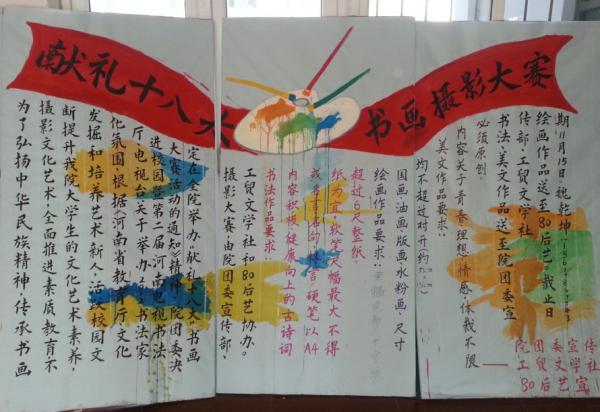 献礼十八大
书画摄影大赛
为了弘扬中华民族精神,传承书画
摄影文化艺术,全面推进素质教育不
断提升我院大学生的文化艺术素养,
发掘和培养艺术新人,活跃校园文
化氛围,根据《河南省教育厅文化
厅、电视台关于举办 书法家
进校园暨第二届河南电视书法
大赛活动的通知》精神,院团委决
定在全院举办"献礼十八大"书画
摄影大赛,由院团委宣传部、
工贸文学社和80后艺协办。
书法作品要求:
内容积极,健康向上的古诗词
或名言名句 硬笔以A4
纸为宜,软笔 幅最大不得
超过6尺整纸。
绘画作品要求:
国画油画、版画水粉画,尺寸
均不超过对开约
美文作品要求:
内容关于青春理想情感,体裁不限
必须原创。
书法、美文作品送至院团委宣
传部、工贸文学社
绘画作品送至80后艺 截止日
期11月15日 魏乾坤
院团委宣传
工贸文学社
80后艺宣